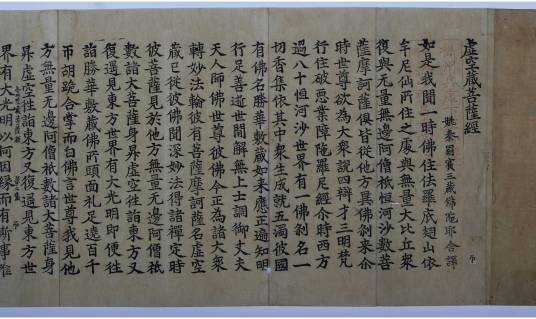 虛空藏菩薩經
姚秦罽賓三藏佛陀耶舍譯
如是我聞一時佛住佉羅底翅山依
牟尼仙所住之處與無量大比丘眾
復與無量無邊阿僧祇恒河沙數菩
薩摩訶薩俱皆從他方異佛剎來尒
時世尊欲為大衆說四辯才三明梵
行住破惡業障陁羅尼經尒時西方
過八十恒河沙世界有一佛剎名一
切香集依其中衆生成就五濁彼國
有佛名勝華敷藏如來應正遍知明
行足善逝世間解無上士調御丈夫
天人師佛世尊彼佛今正為諸大衆
轉妙法輪彼有菩薩摩訶薩名虛空
藏已從彼佛聞深妙法得諸禪定時
彼菩薩見於他方無量無邊阿僧祇
數諸大菩薩身昇虛空往詣東方又
復遇見東方世界有大光明即便往
詣勝華敷藏佛所頭面礼足遶百千
帀胡跪合掌而白佛言世尊我見他
方無量無邊阿僧祇數諸大菩薩身
昇虛空往詣東方又復遇見東方世
界有大光明以何因緣而有斯事唯